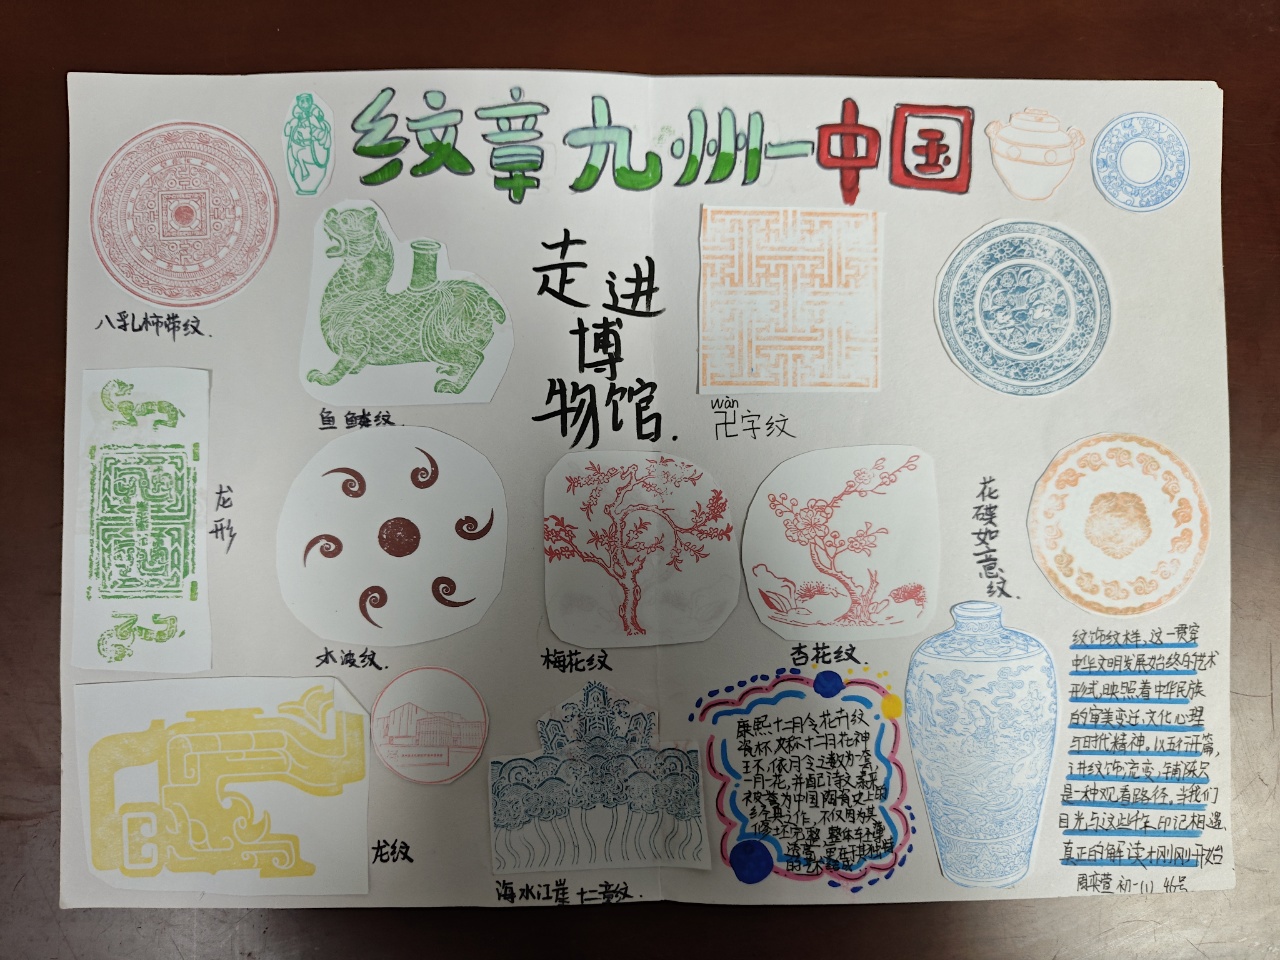 纹章九州一中国
走进
博
物馆.
八乳柿蒂纹.
鱼鳞纹.
wàn
卍字纹
龙形
水波纹.
梅花纹
杏花纹.
花碟如意纹.
龙纹
海水江崖十二章纹.
康熙十二月令花卉纹
瓷杯,又称十二月花神
杯,依月令之数为一套
一月一花,并配诗文素来
被誉为中国陶瓷史上的
经典之作,不仅因为其
纹饰纹样,这一贯穿
中华文明发展始终的艺术
形式,映照着中华民族
的审美变迁、文化心理
与时代精神。以五行开篇,
进纹饰流变,铺陈只
是一种观看路径。当我们
目光与这些千年印记相遇,
真正的解读才刚刚开始.
初一(1) 46号.